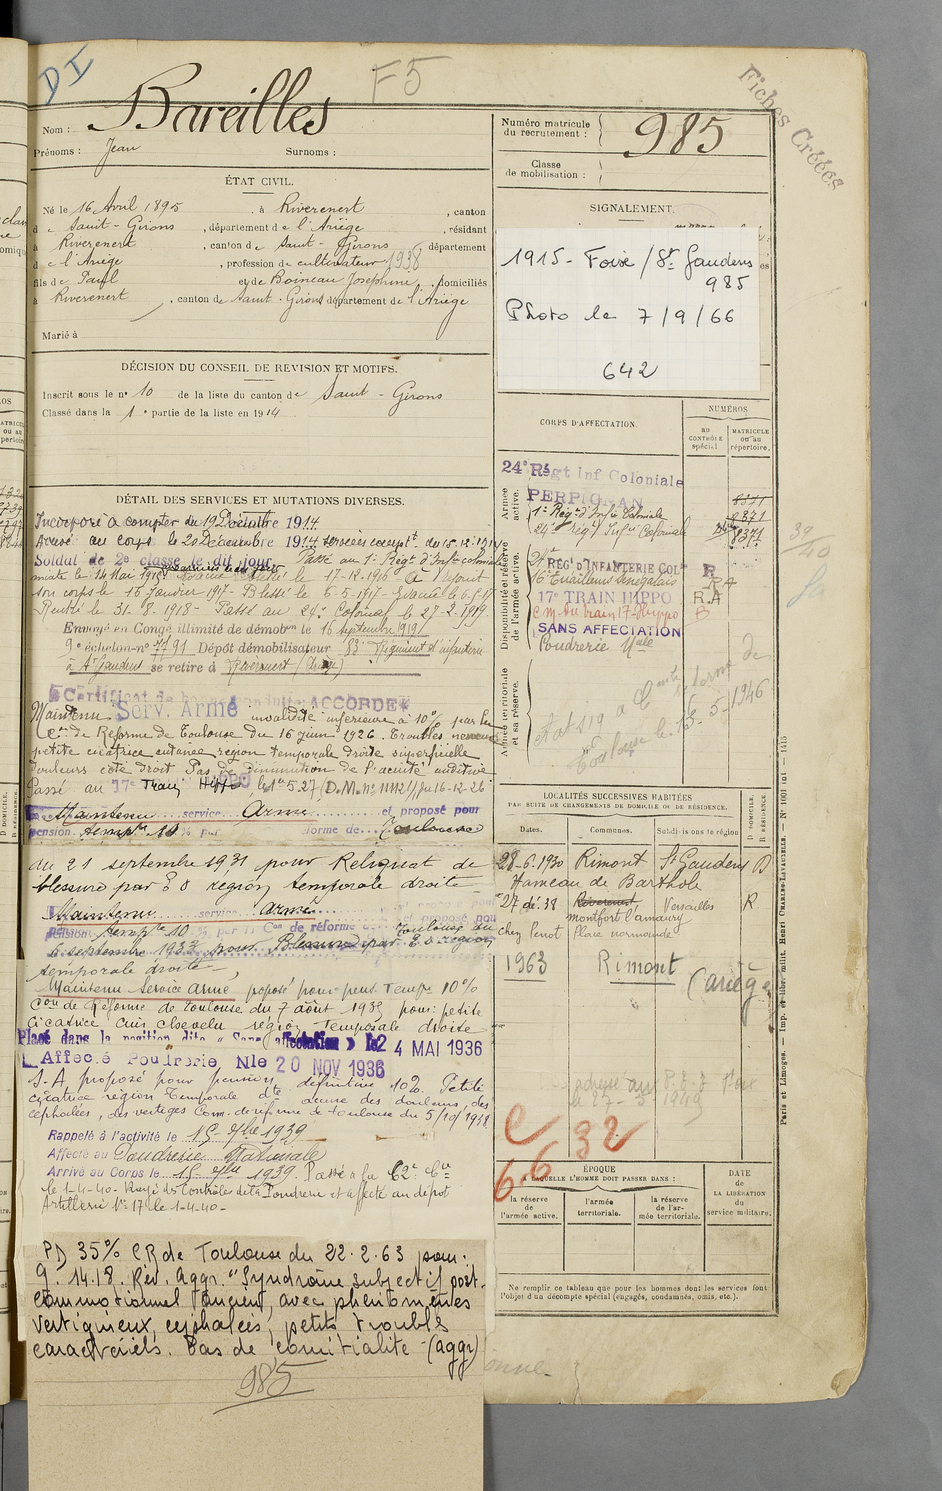 DI
F5
Fiches Créées
Nom : Bareilles
Prénoms : Jean Surnoms :
ÉTAT CIVIL.
Né le 16 Avril 1895, à Riverenert, canton
de Saint-Girons, département de l'Ariège, résidant
à Riverenert, canton de Saint-Girons département
de l'Ariège, profession de cultivateur 1938
fils de Paul et de Boineau Joséphine, domiciliés
à Riverenert, canton de Saint-Girons département de l'Ariège
Marié à
DÉCISION DU CONSEIL DE REVISION ET MOTIFS.
Inscrit sous le n° 10 de la liste du canton de Saint-Girons
Classé dans la 1e partie de la liste en 1914
DÉTAIL DES SERVICES ET MUTATIONS DIVERSES.
Incorporé à compter du 19 Décembre 1914
Arrivé au corps le 20 Décembre 1914 services
Soldat de 2e classe le dit jour Passé au 1er Régt d'Infie coloniale
le 14 Mai 1916 le 17-12-1916 a rejoint
son corps le 16 Janvier 1917 - Blessé le 6-5-1917 - Evacué le 6-5-17
Rentré le 31-8-1918 - Passé au 24e Colonial le 27-2-1919
Envoyé en Congé illimité de démobon le 16 septembre 1919
9e échelon-n° 7791 Dépôt démobilisateur 83e Régiment d'infanterie
à St Gaudens se retire à Riverenert (Ariège)
Certificat de bonne conduite ACCORDÉ
Maintenu Serv. Armé invalidité inférieure à 10% par la
Con de Réforme de Toulouse du 16 juin 1926. Troubles nerveux
petite cicatrice cutanée région temporale droite superficielle
douleurs côté droit Pas de diminution de l'acuité auditive
Passé au 17e Train Hippo le 1er 5.27 (D.M. n° 11121/ du 16-12-26
Maintenu service armé et proposé pour
pension tempre 10 % par réforme de Toulouse
du 21 septembre 1931 pour Reliquat de
blessure par E O région temporale droite
Maintenu service armé et proposé pour
pension tempre 10 % par la Con de réforme de Toulouse du
6 septembre 1933 pour Blessure par E.O région
temporale droite
Maintenu Service armé proposé pour pens. Tempre 10%
Con de Réforme de Toulouse du 7 août 1935 pour petite
cicatrice cuir chevelu région temporale droite
Placé dans la position dite « Sans affectation » le 24 MAI 1936
Affecté Poudrerie Nle 20 NOV 1936
S.A. proposé pour pension définitive 10%. Petite
cicatrice région temporale dte accuse des douleurs, des
céphalées, des vertiges Com. de réforme de toulouse du 5/10/1938
Rappelé à l'activité le 15 7bre 1939
Affecté au Poudrerie Nationale
Arrivé au Corps le 15 7bre 1939. Passé à la 62e Cie
le 1-4-40. Rayé des Contrôles de la Poudrerie et affecté au dépot
Artillerie N° 17 le 1-4-40-
PD 35% CR de Toulouse du 22.2.63 pour :
G. 14.18. Rév. Aggr. "Syndrome subjectif post.
commotionnel ancien, avec phénomènes
vertigineux, céphalées, petits troubles
caractériels. Pas de comitialité - (aggr)
985
Numéro matricule du recrutement : 985
Classe de mobilisation :
SIGNALEMENT.
1915 - Foix / St Gaudens
985
Photo le 7/9/66
642
CORPS D'AFFECTATION.
NUMÉROS
au CONTRÔLE spécial
MATRICULE ou au répertoire.
Armée active.
24e Régt Inf Coloniale
PERPIGNAN
1er Régt d'Infie Coloniale
24e Régt Infie Coloniale
8371
8371
8371
Disponibilité et réserve de l'armée active.
24e RÉGt D'INFANTERIE COLle R
16e Tirailleurs Sénégalais RA
17e TRAIN HIPPO R.A
C.M. du train 17 Hippo B
SANS AFFECTATION
Poudrerie Nale
39/40
Armée territoriale et sa réserve.
Toulouse le 15-5-1946
LOCALITÉS SUCCESSIVES HABITÉES
PAR SUITE DE CHANGEMENTS DE DOMICILE OU DE RÉSIDENCE.
Dates. Communes. Subdivisions de région D DOMICILE. R RÉSIDENCE.
28-6-1930 Rimont St Gaudens D
Hameau de Barthole
27 déc 38 Riverenert Versailles R.
Montfort l'amaury
chez Penot place normande
1963 Rimont (ariège)
adresse au
le 27-3-1949
C 32
6.6
ÉPOQUE
À LAQUELLE L'HOMME DOIT PASSER DANS :
la réserve de l'armée active.
l'armée territoriale.
la réserve de l'armée territoriale.
DATE DE LA LIBÉRATION du service militaire.
Ne remplir ce tableau que pour les hommes dont les services sont
l'objet d'un décompte spécial (engagés, condamnés, omis, etc.).
Paris et Limoges. — Imp. et libr. milit. Henri CHARLES-LAVAUZELLE. — N° 1001 — 1415